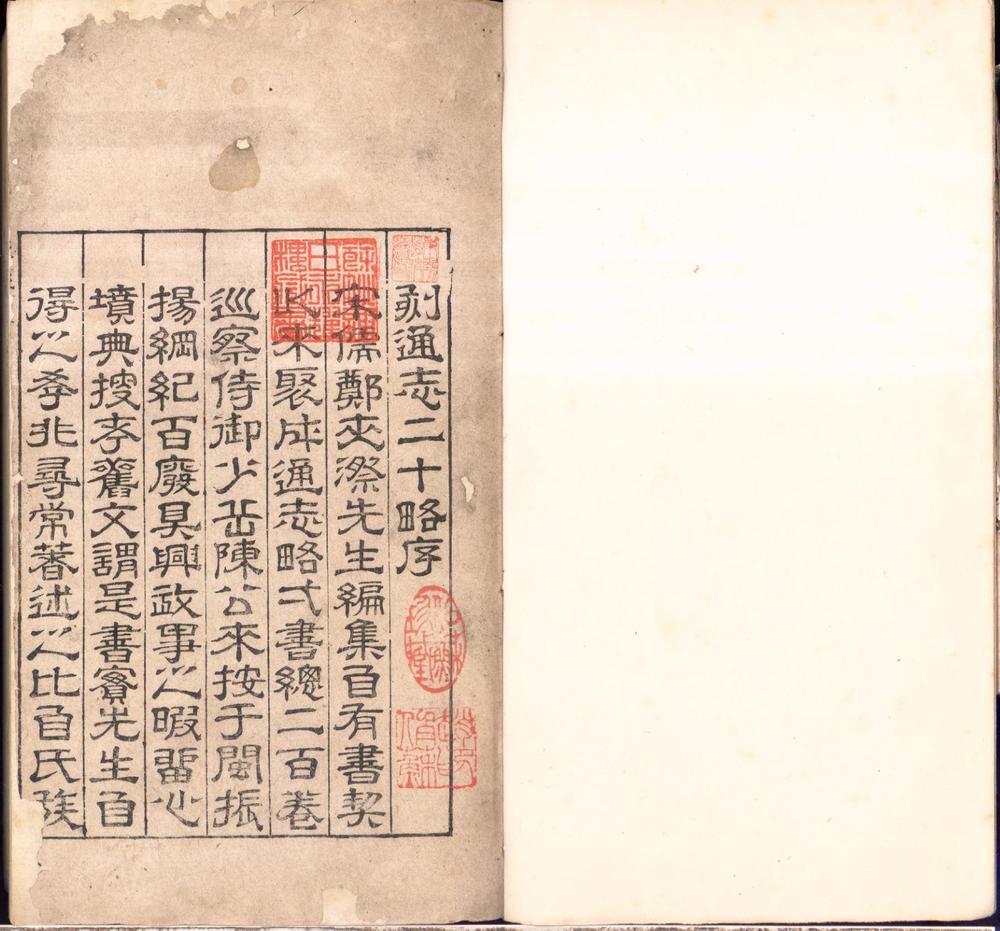 刻通志二十略序
宋儒鄭夾漈先生編集自有書契
以來聚成通志略弌書總二百卷
巡察侍御少岳陳公來按于閩振
揚綱紀百廢具興政事之暇畱心
墳典搜求舊文謂是書實先生自
得之學非尋常著述之比自氏族